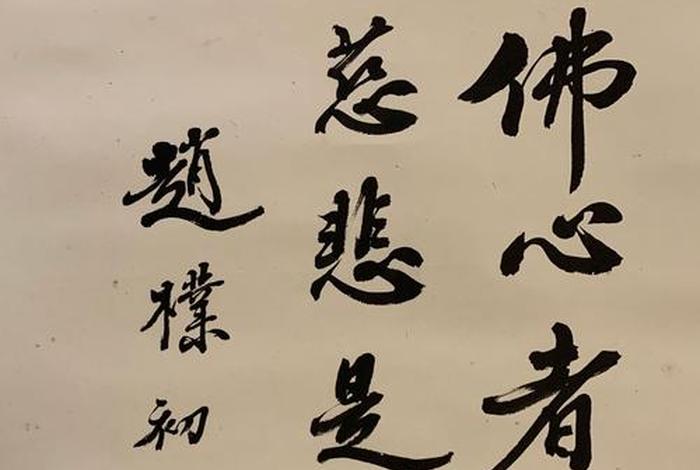 佛心者
慈悲是
趙樸初